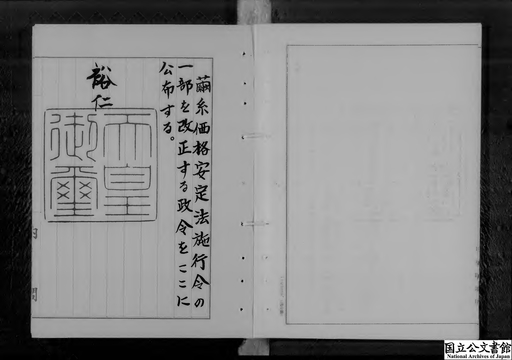 繭糸価格安定法施行令の
一部を改正する政令をここに
公布する。
裕仁
天皇
御璽
内閣
国立公文書館
National Archives of Japan